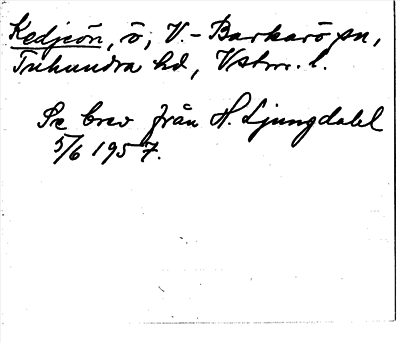 Kedjeön, ö, V.-Barkarö sn,
Tuhundra hd, Vstm. l.
Se brev från H. Ljungdahl
5/6 1957.